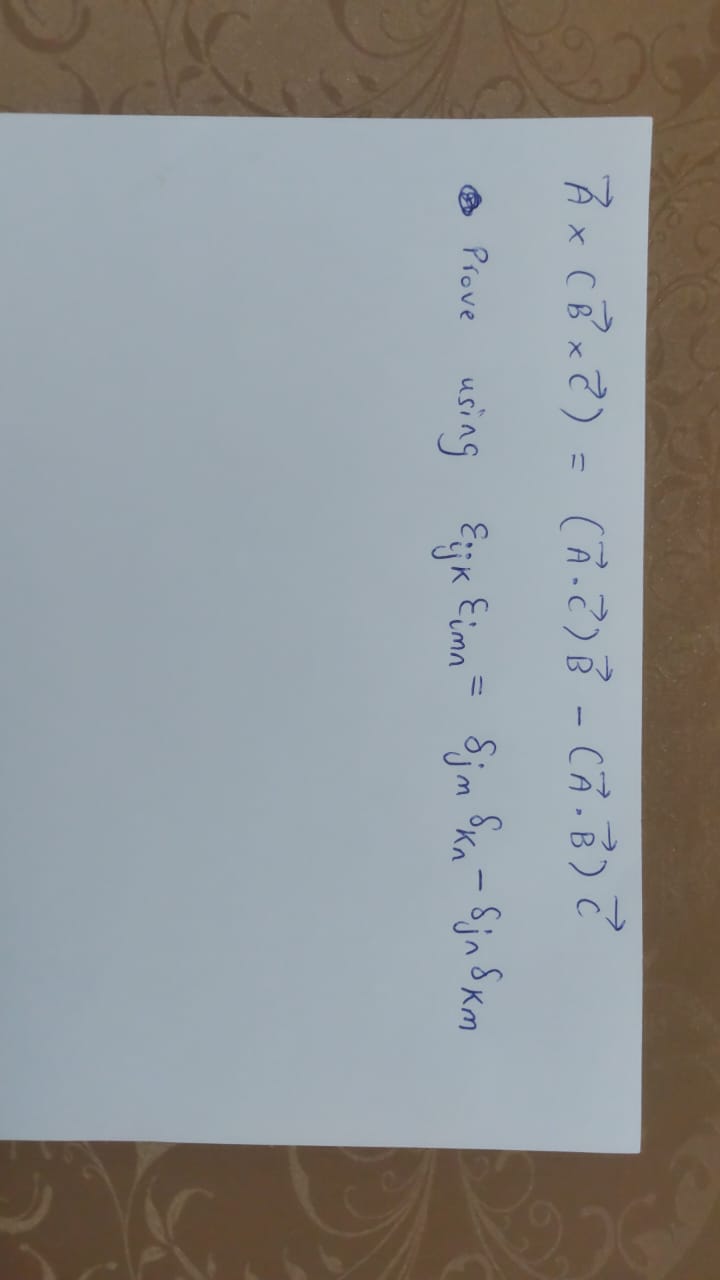 A⃗ × (B⃗ × C⃗) = (A⃗ · C⃗) B⃗ − (A⃗ · B⃗) C⃗
Prove using εijk εimn = δjm δkn − δjn δkm